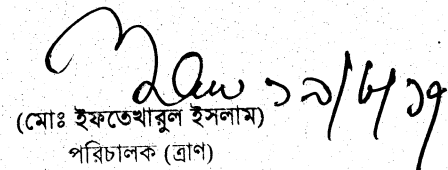 ১৯/৮/১৭
(মোঃ ইফতেখারুল ইসলাম)
পরিচালক (ত্রাণ)